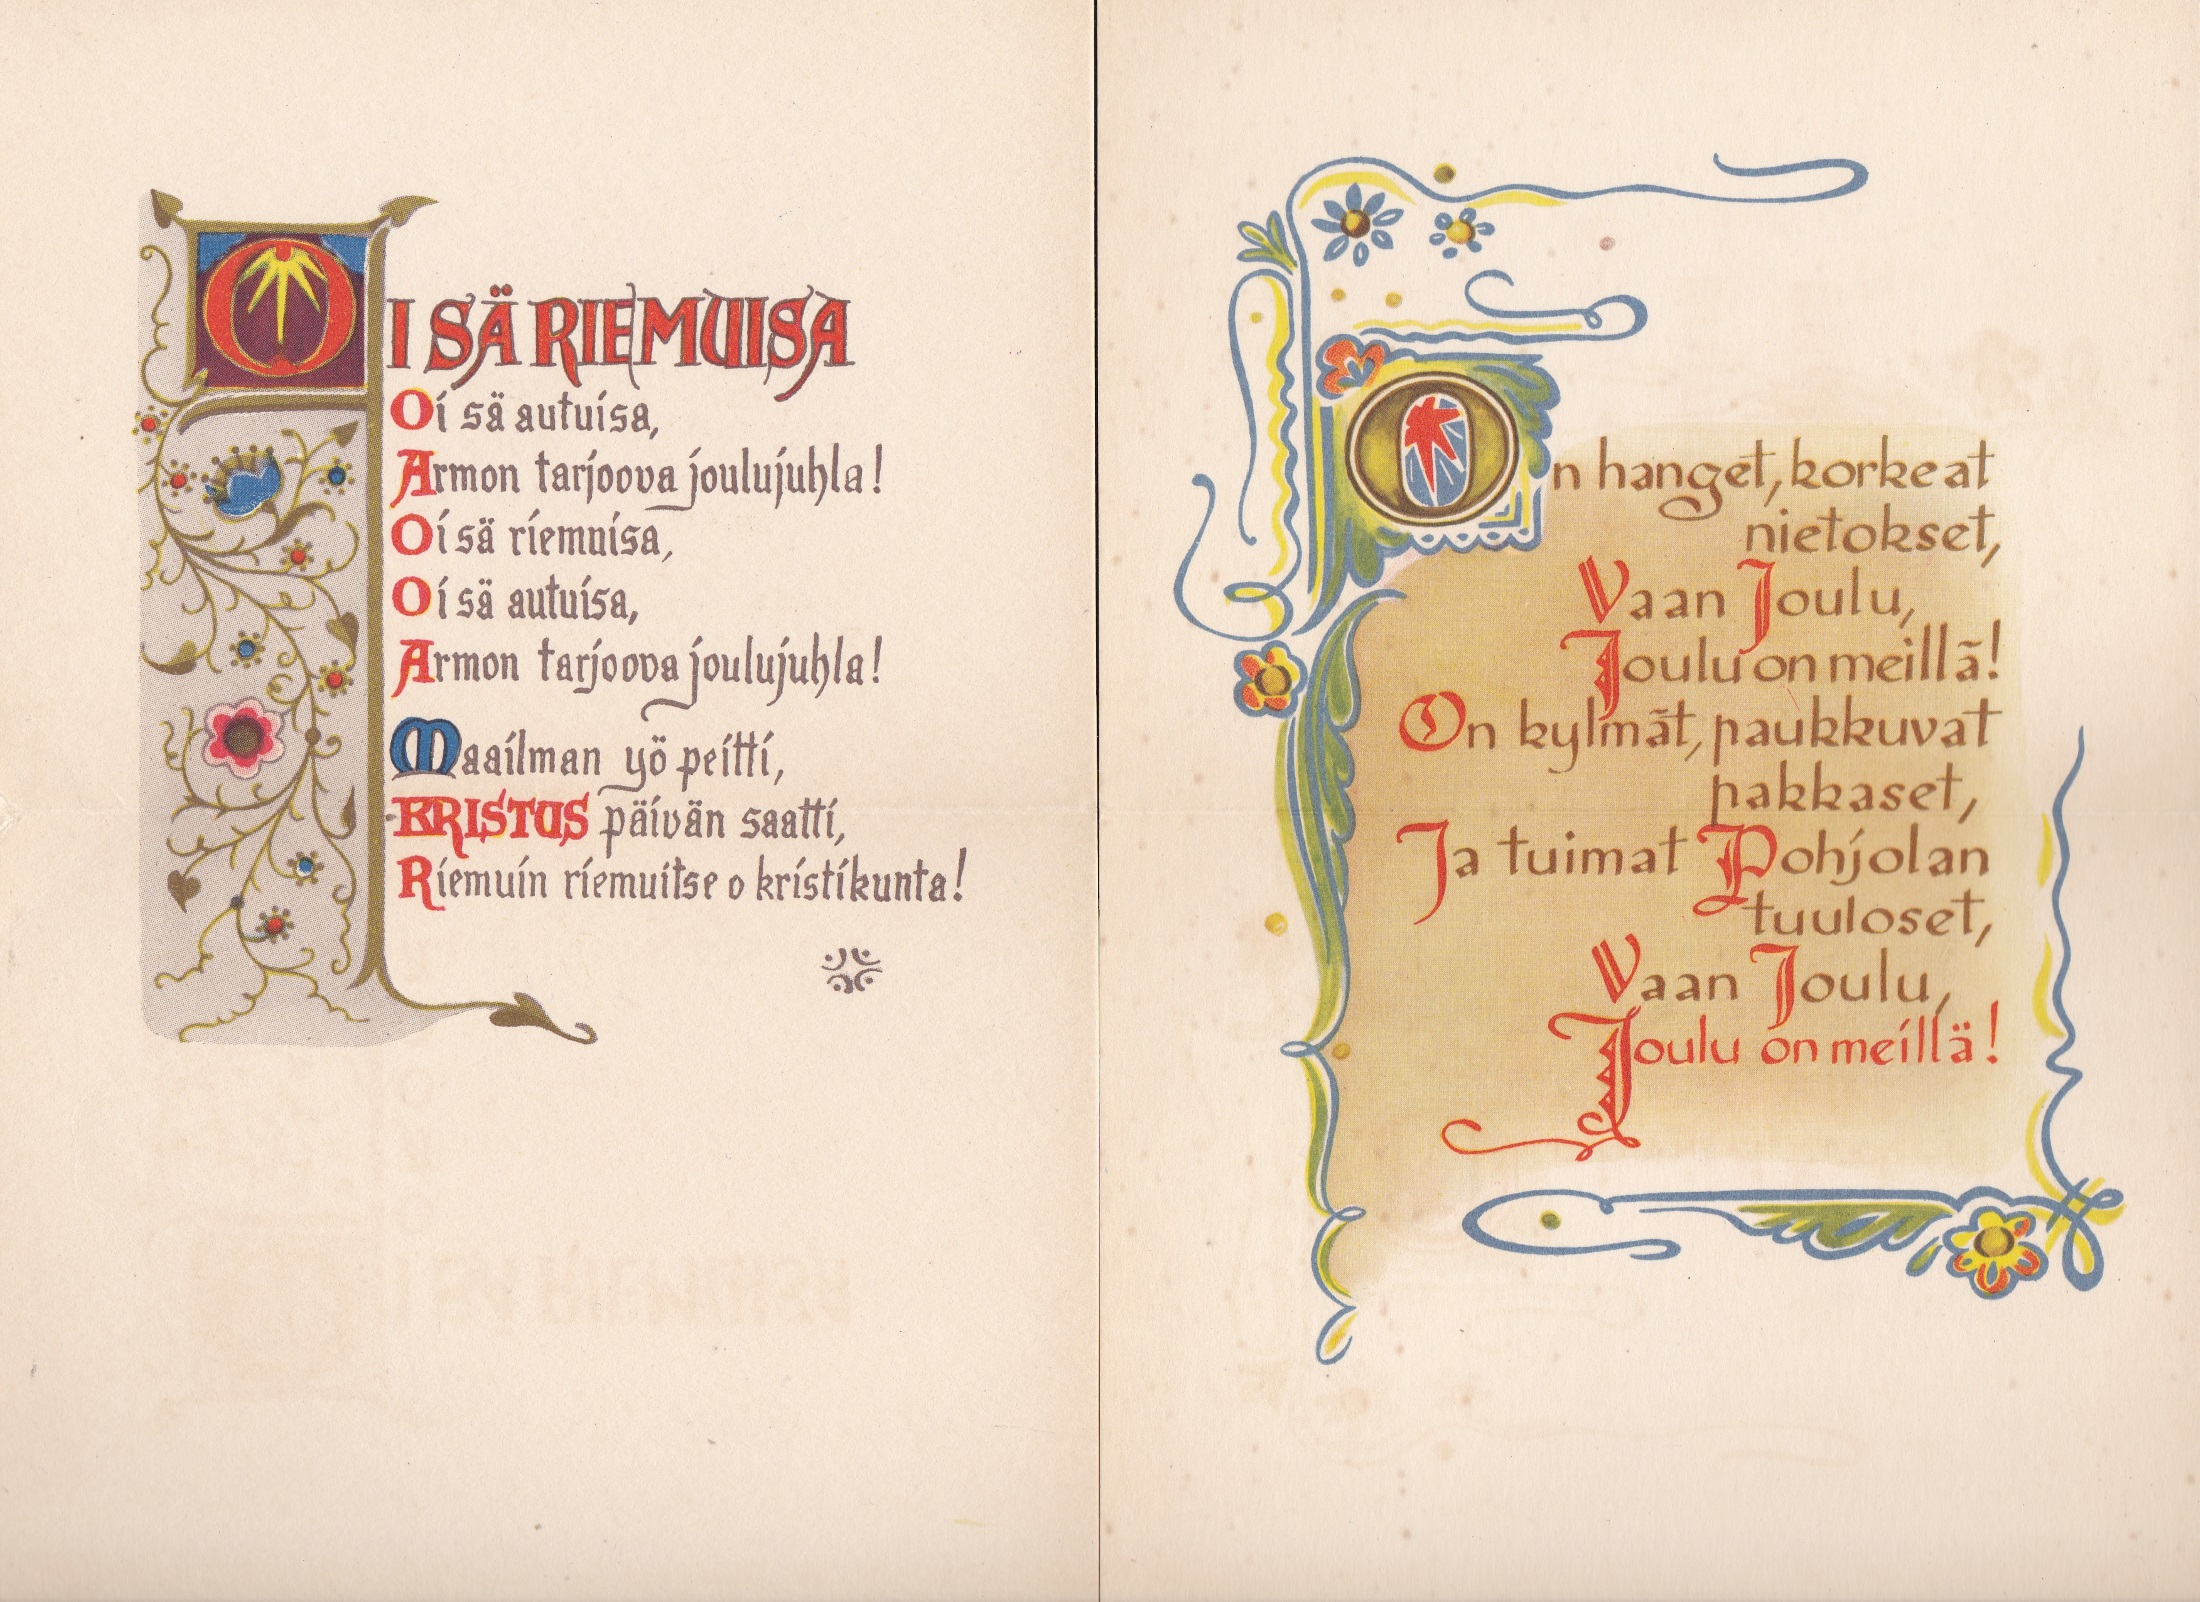 OI SÄ RIEMUISA
Oi sä autuisa,
Armon tarjoova joulujuhla!
Oi sä riemuisa,
Oi sä autuisa,
Armon tarjoova joulujuhla!
Maailman yö peitti,
KRISTUS päivän saatti,
Riemuin riemuitse o kristikunta!
On hanget, korkeat
nietokset,
Vaan Joulu,
Joulu on meillä!
On kylmät, paukkuvat
pakkaset,
Ja tuimat Pohjolan
tuuloset,
Vaan Joulu,
Joulu on meillä!